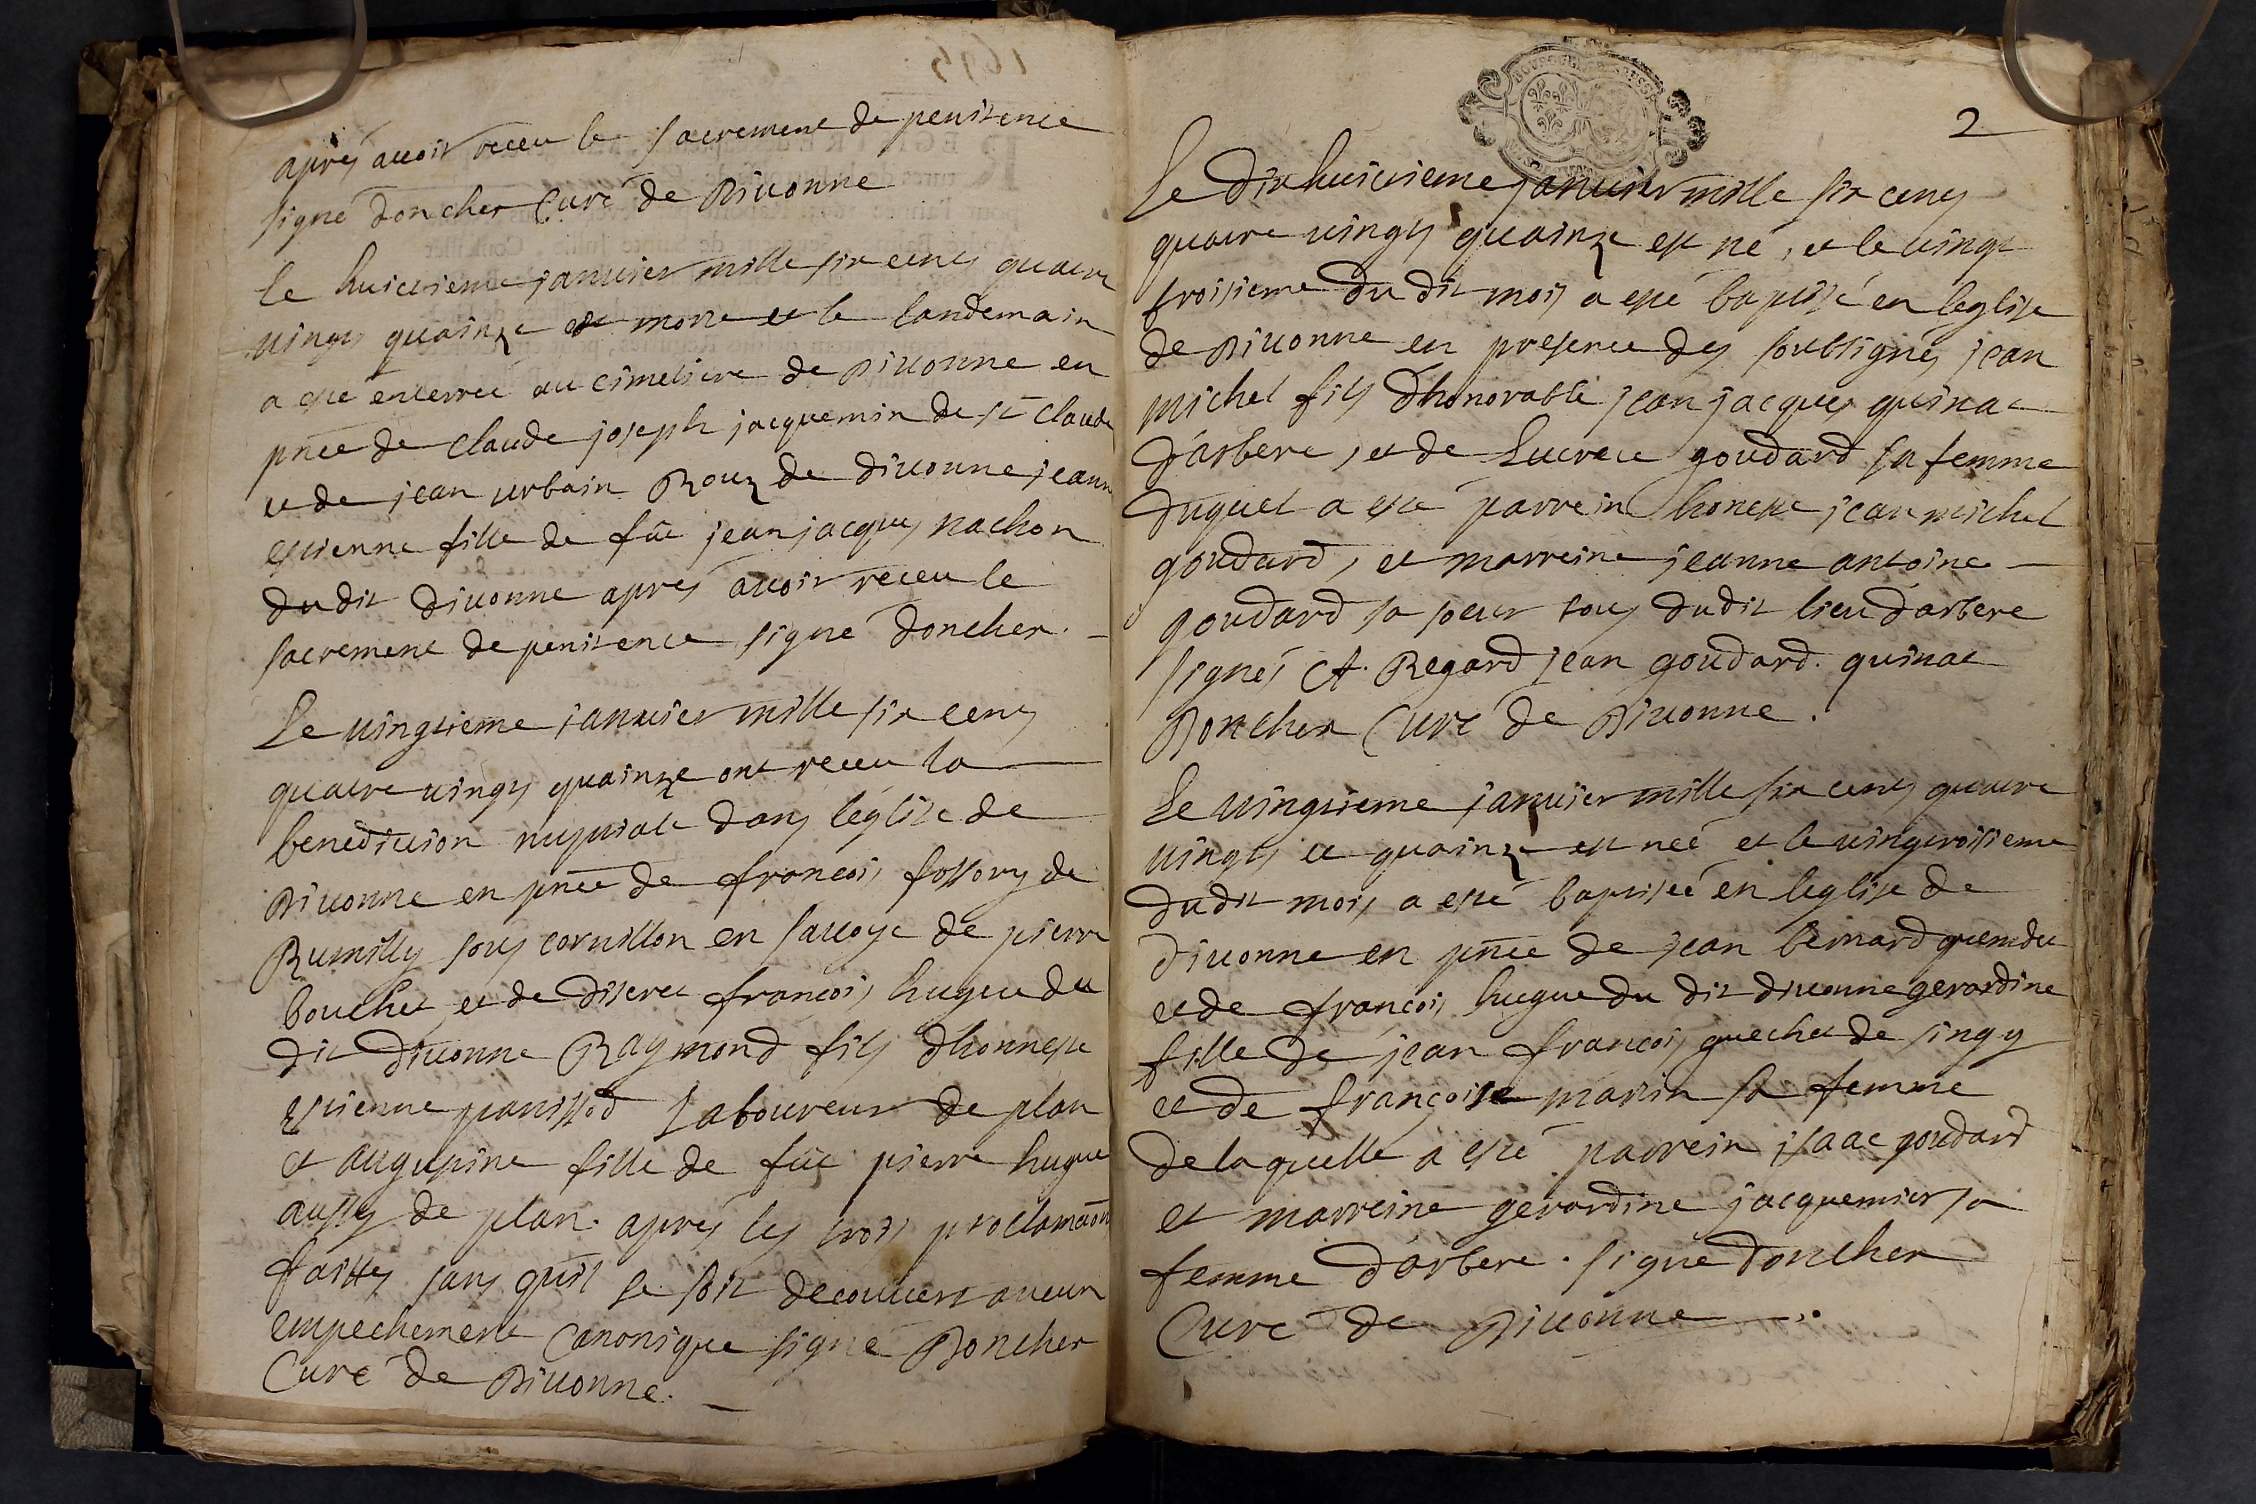 apres auoir receu le sacrement de penitence
signé doncher Curé de Diuonne
le huictieme januier mille six cens quatre
uingts quainze est morte et le landemain
a esté enterreé au cimetiere de Diuonne en
pnce de claude joseph jacquemin de st claude
et de jean urbain Rouz de diuonne jeanne
estienne fille de fût jean jacques nachon
du dit diuonne apres auoir receu le
sacrement de penitence signé doncher.
Le uingtieme januier mille six cens
quatre uingts quainze ont receu la
benediction nuptiale dans leglise de
Diuonne en pnce de francois fossory de
Rumilly sous cornillon en sauoye de pierre
bouchet et de discret francois hugue du
dit diuonne Raymond fils dhonneste
estienne panissod Laboureur de plan
et augustine fille de fût pierre hugue
aussy de plan. apres les trois proclamaons
faittes sans quil se soit decouuert aucun
empechement Canonique signé Doncher
Curé de Diuonne.
2
Le dixhuictieme januier mille six cens
quatre uingts quainze est né, et le uingt
troisieme du dit mois a esté baptisé en leglise
de Diuonne en presence des soubsignés jean
michel fils dhonorable jean jacques quinat
d'arbere, et de Lucrece goudard sa femme
duquel a esté parrein honeste jean michel
goudard, et marreine jeanne antoine
goudard sa soeur tous du dit lieu d'arbere
signés A. Regard jean goudard. quinat
Doncher Curé de Diuonne.
Le uingtieme januier mille six cens quatre
uingts et quainze est neé et le uingtroisieme
du dit mois a esté baptiseé en leglise de
diuonne en pnce de jean bernard
et de francois hugue du dit diuonne gerardine
fille de jean francois quechet de singy
et de françoise marin sa femme
de laquelle a esté parrein isaac goudard
et marreine gerardine jacquemier sa
femme d'arbere. signé doncher
Curé de Diuonne